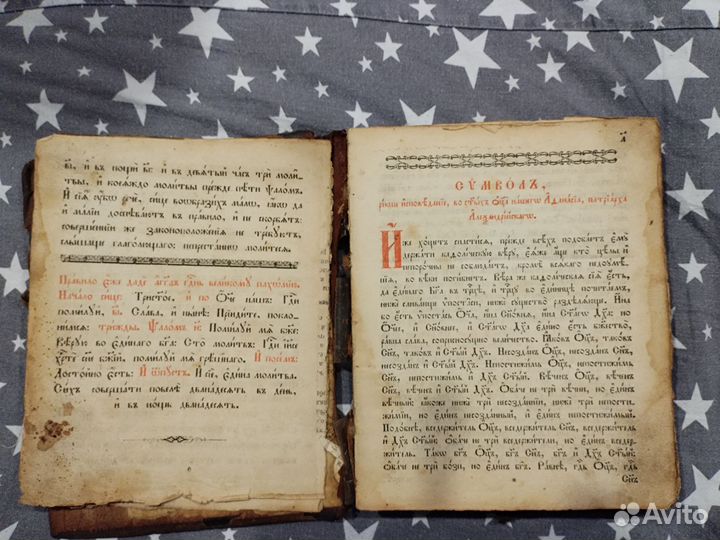 в҃і, и҆ въ нощи в҃і: и҆ въ девѧ́тый ча́съ трѝ моли́-
твы, и҆ коемꙋ́ждо моли́твы пре́жде пѣ́ти ѱало́мъ.
и҆ ма́лїи доспѣва́ютъ въ пра́вило, и҆ не скорбѧ́тъ:
соверше́ннїи же законоположе́нїѧ не тре́бꙋютъ,
слы́шащи глаго́лющаго: непреста́ннѡ моли́тесѧ.
Пра́вило є҆́же дадѐ а҆́гг҃лъ гд҇ень вели́комꙋ пахѡ́мїю.
Нача́ло си́це: Трист҃о́е. И҆ по Ѻ҆́ч҃е на́шъ: Гд҇и
поми́лꙋй, в҃і. Сла́ва, и҆ ны́нѣ: Прїиди́те, покло-
ни́мсѧ: три́жды. Ѱало́мъ н҃: Поми́лꙋй мѧ̀ бж҃е:
Вѣ́рꙋю во є҆ди́наго бг҃а: Сто̀ моли́твъ: Гд҇и і҆и҃се
хр҇тѐ сн҃е бж҃їй, поми́лꙋй мѧ̀ грѣ́шнаго. И҆ посе́мъ:
Досто́йно є҆́сть: И҆ ѿпꙋ́стъ. И҆ сїѐ, є҆ди́на моли́тва.
Си́хъ соверша́ти повелѣ̀ двана́десѧть въ де́нь,
и҆ въ нощѝ двана́десѧть.
а҃
СѴ́МВОЛЪ,
и҆́же во ст҃ы́хъ Ѻ҆ц҃а̀ на́шегѡ А҆ѳана́сїа, патрїа́рха
А҆леѯандрі́йскагѡ.
И҆́же хо́щетъ спасти́сѧ, пре́жде всѣ́хъ подоба́етъ є҆мꙋ̀
держа́ти каѳоли́ческꙋю вѣ́рꙋ, є҆ѧ́же а҆́ще кто̀ цѣ́лы и҆
непоро́чны не соблюде́тъ, кромѣ̀ всѧ́кагѡ недоꙋмѣ́-
нїѧ, во вѣ́ки поги́бнетъ. Вѣ́ра же каѳоли́ческаѧ сїѧ̀ є҆́сть,
да є҆ди́наго Бг҃а въ трⷪ҇цѣ, и҆ трⷪ҇цꙋ во є҆ди́ницѣ почита́емъ,
нижѐ слива́юще ѵ҆поста̑си, нижѐ сꙋщество̀ раздѣлѧ́юще. И҆́на
бо є҆́сть ѵ҆поста́сь Ѻ҆́ч҃а, и҆́на Сн҃о́внѧ, и҆́на Ст҃а́гѡ Дх҃а: Но
Ѻ҆́ч҃ее, и҆ Сн҃о́внее, и҆ Ст҃а́гѡ Дх҃а є҆ди́но є҆́сть бж҃ество̀,
ра́вна сла́ва, соприсносꙋ́щно вели́чество. Ꙗ҆ко́въ Ѻ҆ц҃ъ, тако́въ
Сн҃ъ, тако́въ и҆ Дх҃ъ Ст҃ы́й. Несозда́нъ Ѻ҆ц҃ъ, несозда́нъ Сн҃ъ,
несозда́нъ и҆ Дх҃ъ Ст҃ы́й. Непостижи́мь Ѻ҆ц҃ъ, непостижи́мь
Сн҃ъ, непостижи́мь и҆ Дх҃ъ Ст҃ы́й. Вѣ́ченъ Ѻ҆ц҃ъ, вѣ́ченъ
Сн҃ъ, вѣ́ченъ и҆ Дх҃ъ Ст҃ы́й. Ѻ҆ба́че не трѝ вѣ́чнїи, но є҆ди́нъ
вѣ́чный: ꙗ҆́коже нижѐ трѝ несозда́ннїи, нижѐ трѝ непости-
жи́мїи, но є҆ди́нъ несозда́нный, и҆ є҆ди́нъ непостижи́мый.
Подо́бнѣ, вседержи́тель Ѻ҆ц҃ъ, вседержи́тель Сн҃ъ, вседержи́тель
и҆ Дх҃ъ Ст҃ы́й: Ѻ҆ба́че не трѝ вседержи́тели, но є҆ди́нъ вседер-
жи́тель. Та́кѡ Бг҃ъ Ѻ҆ц҃ъ, Бг҃ъ Сн҃ъ, Бг҃ъ и҆ Дх҃ъ Ст҃ы́й:
Ѻ҆ба́че не трѝ бо́зи, но є҆ди́нъ бг҃ъ. Ра́внѣ, гд҇ь Ѻ҆ц҃ъ, гд҇ь
Сн҃ъ
Avito